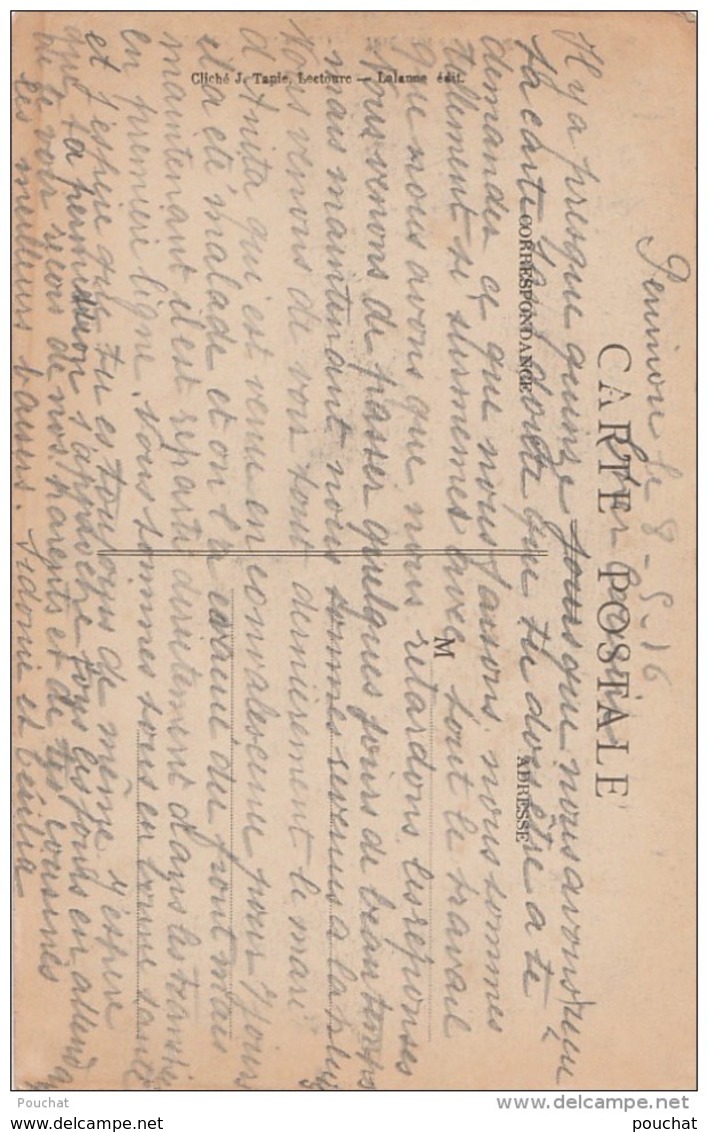 CARTE POSTALE
CORRESPONDANCE
ADRESSE
M
Cliché J. Tapie, Lectoure — Lalanne édit.
le 8-5-16
Cher cousin
Il y a presque quinze jours que nous avons reçu
ta carte sans doute que tu dois être a te
demander ce que nous faisons nous sommes
tellement si surmemes avec tout le travail
que nous avons que nous retardons les réponses
Nous venons de passer quelques jours de beau temps
mais maintenant nous sommes revenus a la pluie
Nous venons de voir tout dernièrement le mari
d'Anita qui est venu en convalescense pour 7 jours
il a été malade et on l'a évacué du front mais
maintenant il est reparti directement dans les tranchées
en première ligne. Nous sommes tous en bonne santé
et j'espère que tu es toujours de même j'espère
que ta permission s'approche tous les jours en attendant
de te voir reçois de nos parents et de tes cousines
les meilleurs baisers. Sidonie et Cécilia
Pouchat
delcampe.net
pouchat